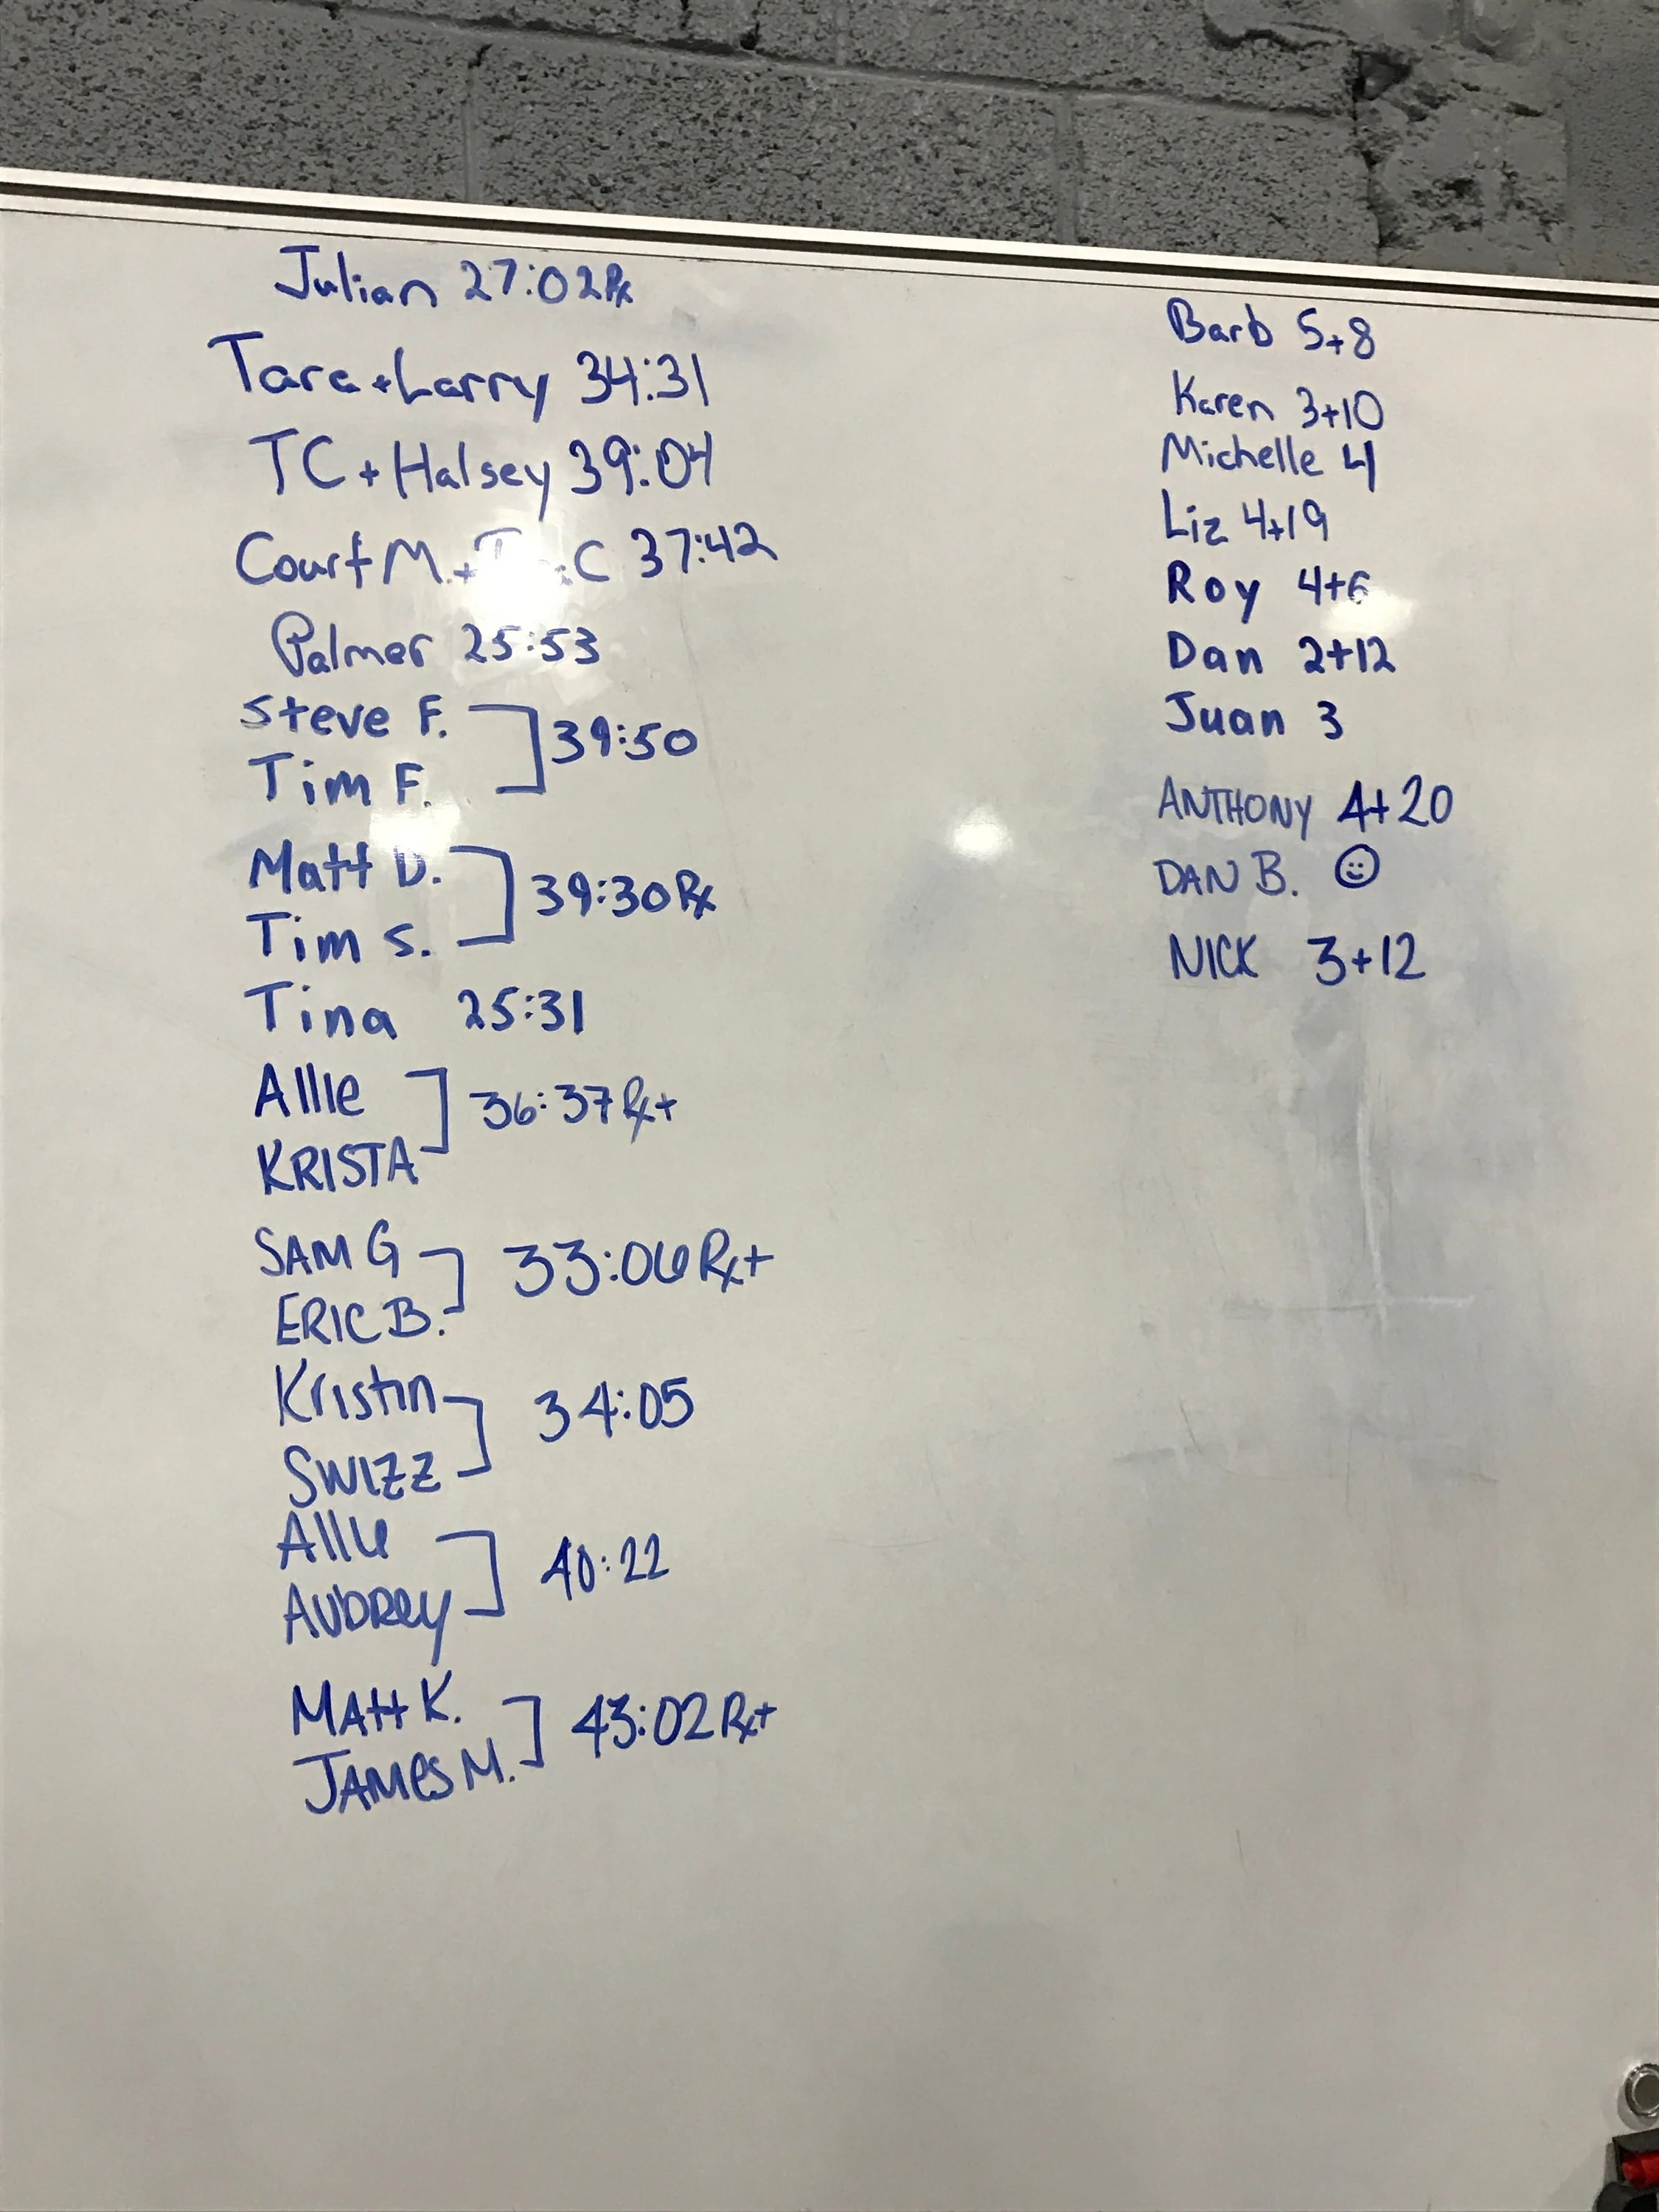 Julian 27:02 Rx
Tara + Larry 34:31
TC + Halsey 39:04
Court M. + C 37:42
Palmer 25:53
Steve F.
Tim F.
39:50
Matt D.
Tim S.
39:30 Rx
Tina 25:31
Allie
KRISTA
36:37 Rx+
SAM G
ERIC B.
33:06 Rx+
Kristin
SWIZZ
34:05
Allie
AUBRey
40:22
MAtt K.
JAMes M.
43:02 Rx+
Barb 5+8
Karen 3+10
Michelle 4
Liz 4+19
Roy 4+6
Dan 2+12
Juan 3
ANTHONY 4+20
DAN B. ☺
NICK 3+12